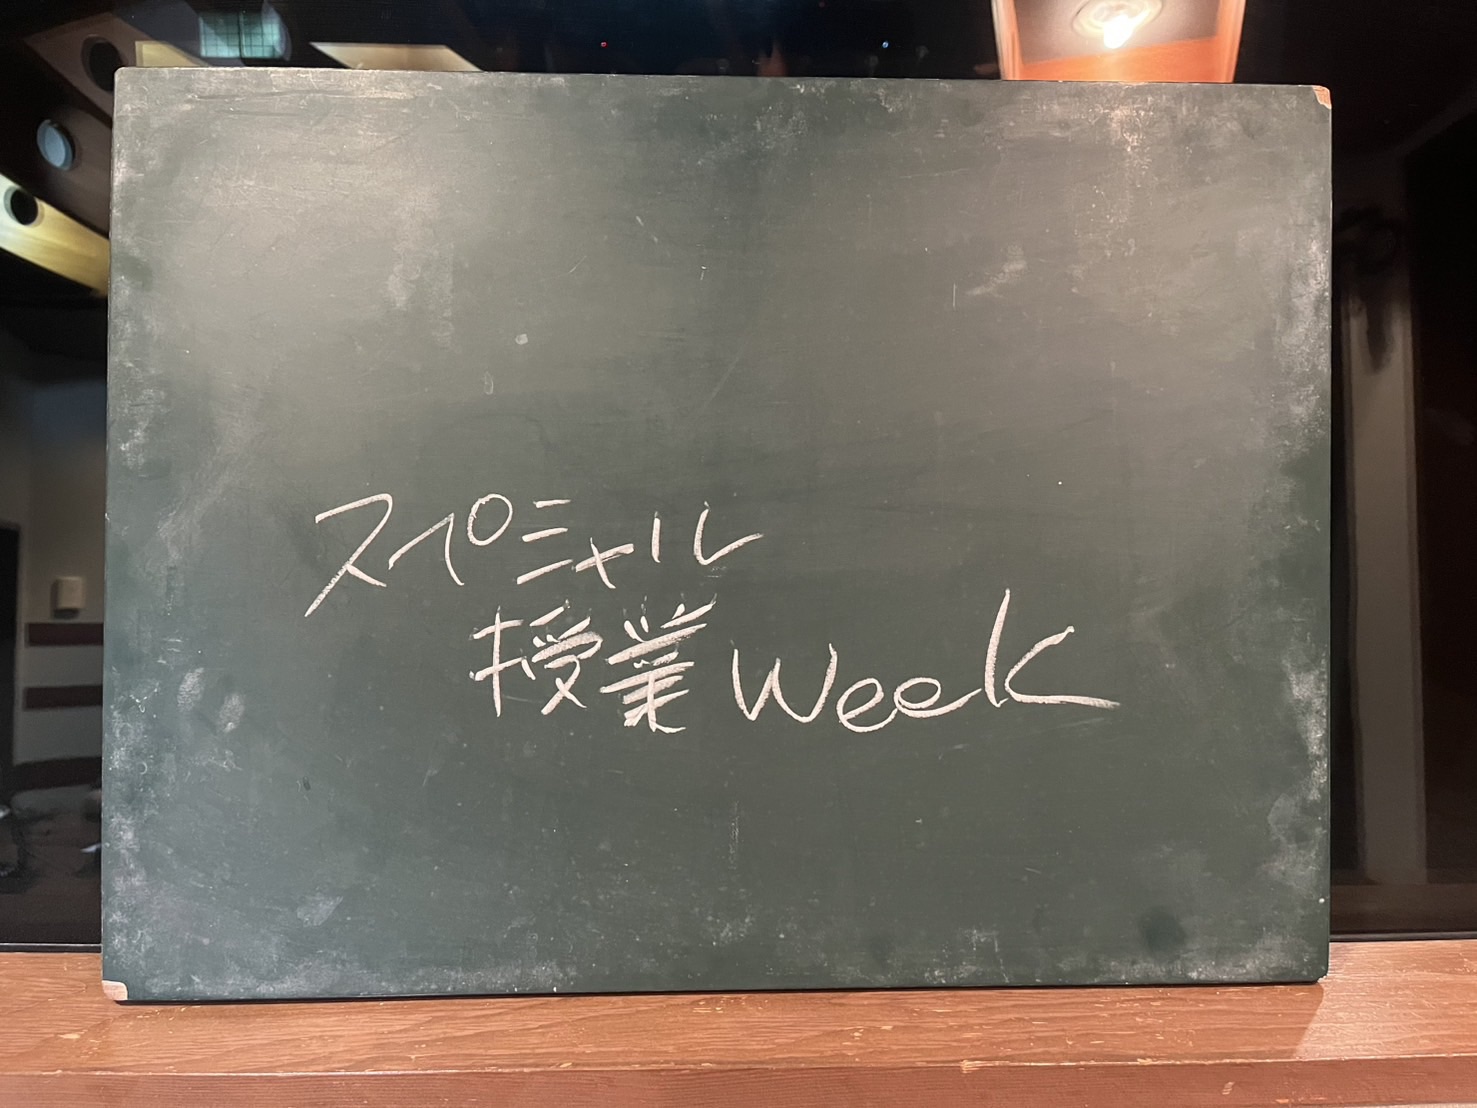 スペシャル
授業Week